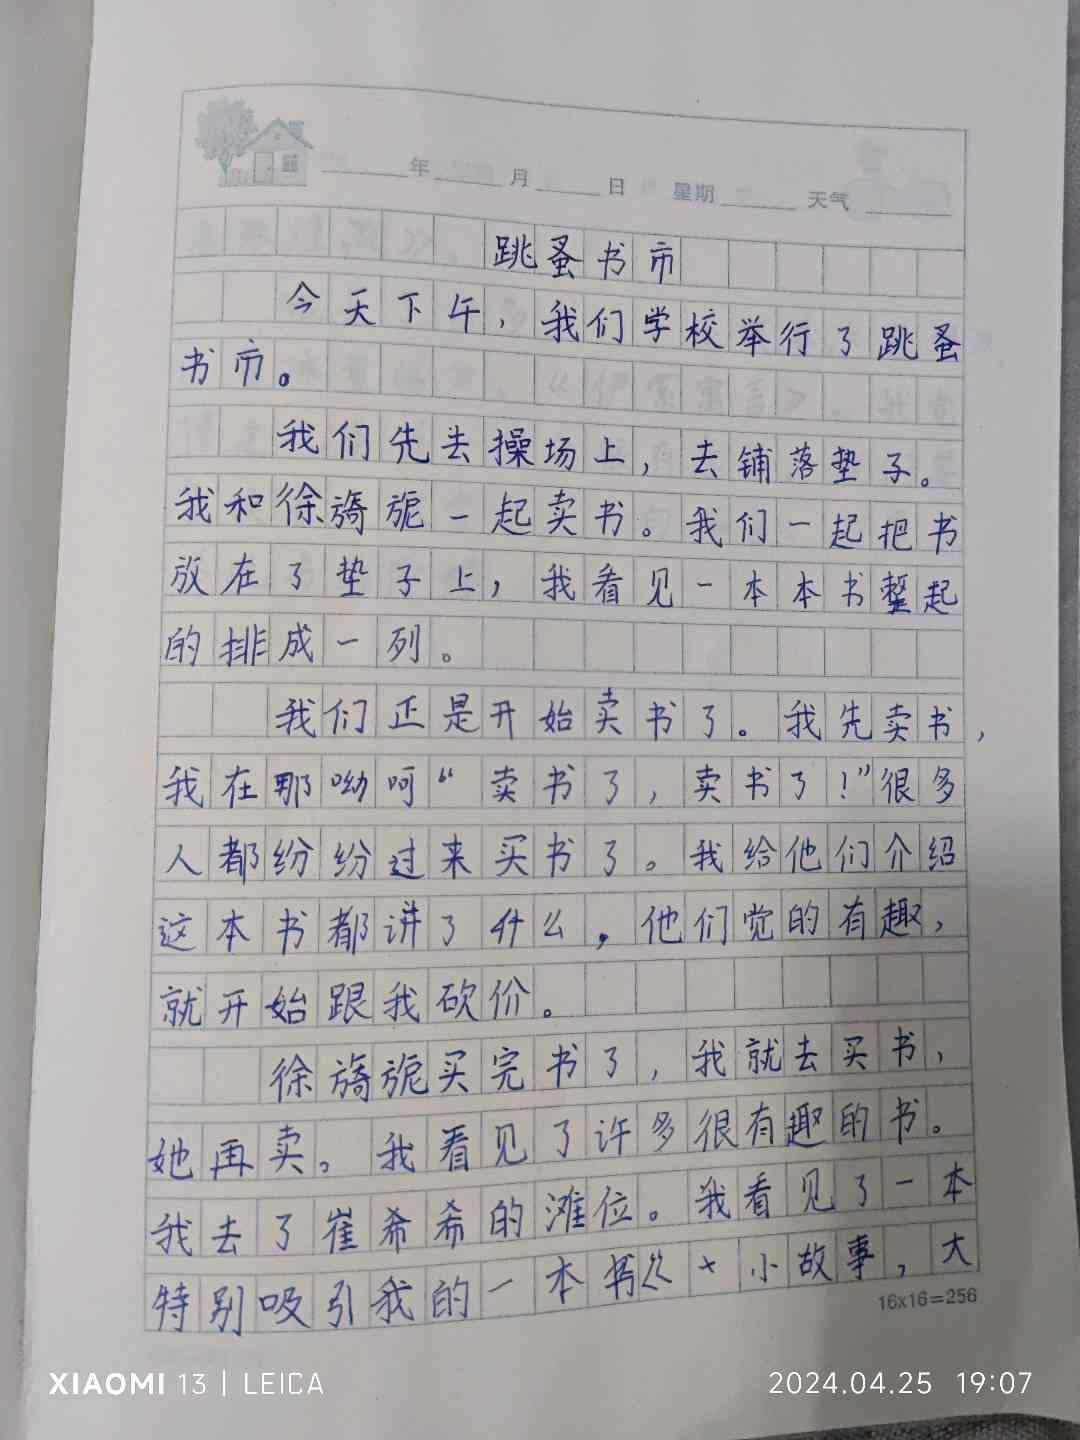 年 月 日 星期 天气
跳蚤书市
今天下午，我们学校举行了跳蚤
书市。
我们先去操场上，去铺落垫子。
我和徐旖旎一起卖书。我们一起把书
放在了垫子上，我看见一本本书整起
的排成一列。
我们正是开始卖书了。我先卖书，
我在那呦呵“卖书了，卖书了！”很多
人都纷纷过来买书了。我给他们介绍
这本书都讲了什么，他们觉的有趣，
就开始跟我砍价。
徐旖旎买完书了，我就去买书，
她再卖。我看见了许多很有趣的书。
我去了崔希希的滩位。我看见了一本
特别吸引我的一本书《大小故事，大
16x16=256
XIAOMI 13 | LEICA
2024.04.25 19:07